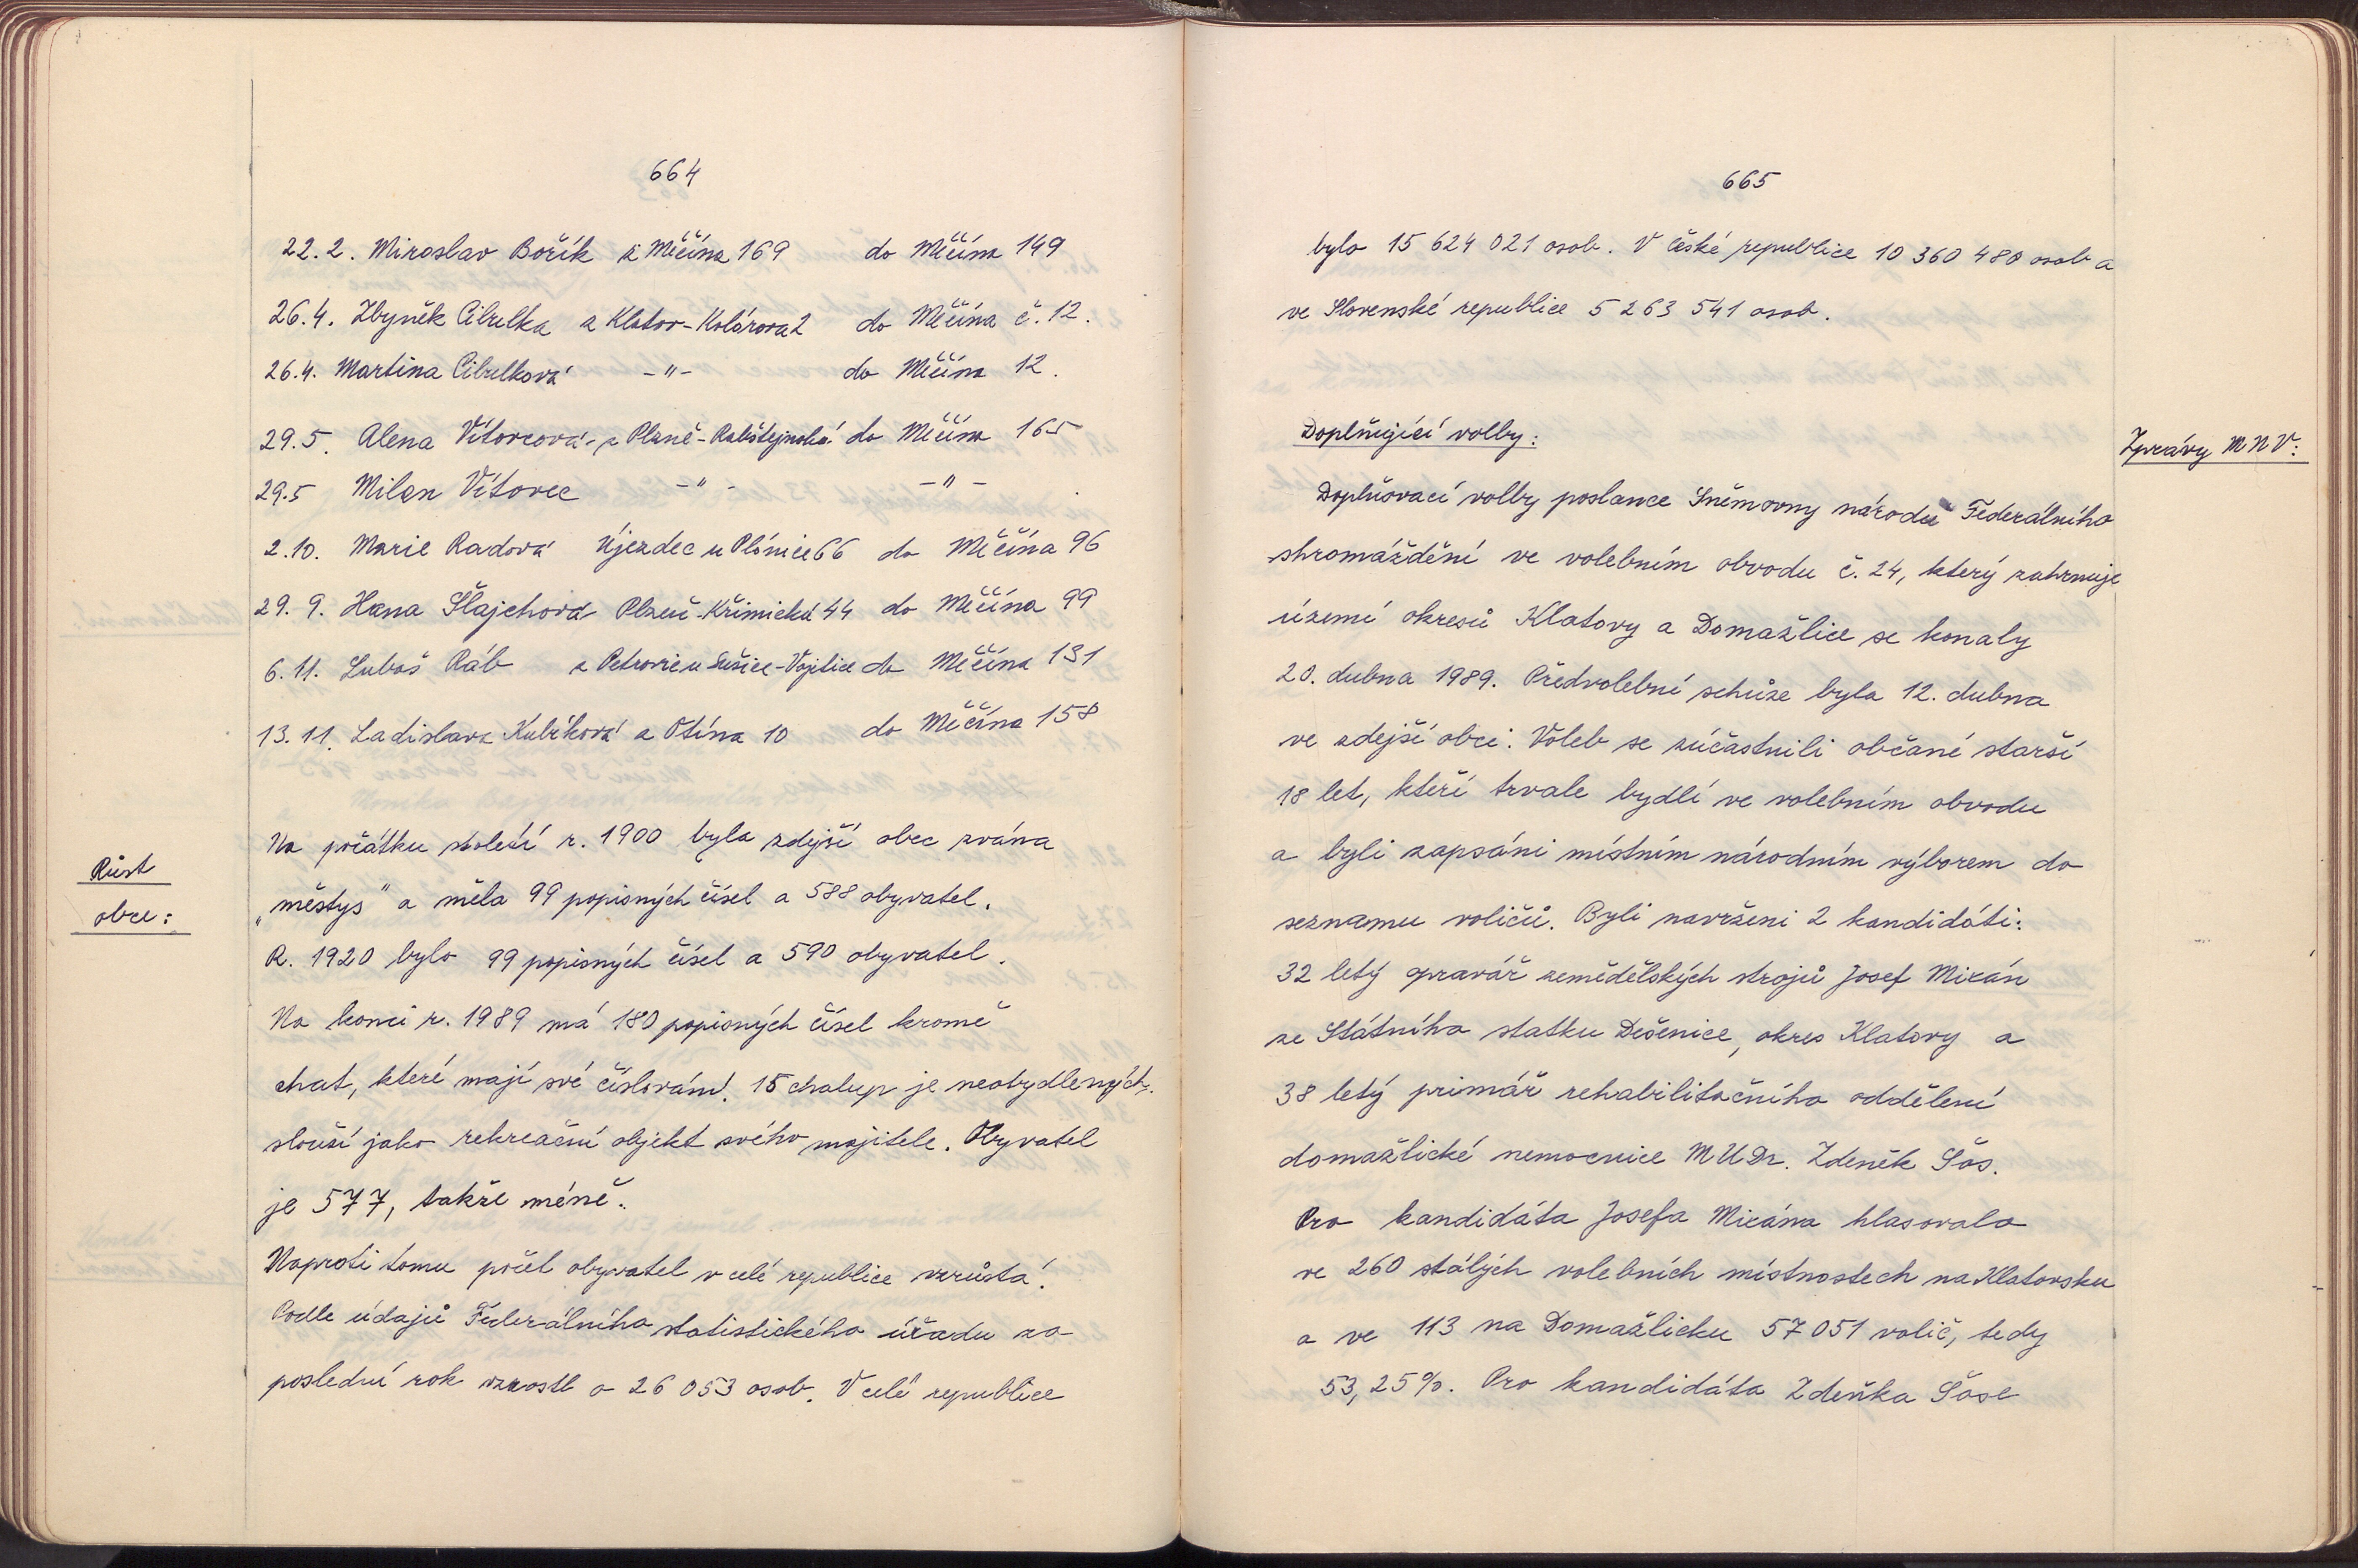 664
22.2. Miroslav Bořík z Měčína 169 do Měčína 149
26.4. Zbyněk Cibulka z Klatov-Kolárova 2 do Měčína č. 12.
26.4. Martina Cibulková -"- do Měčína 12.
29.5. Alena Vítovcová - z Plzně-Rabštejnská do Měčína 165
29.5 Milan Vítovec -"- -"-
2.10. Marie Radová Újezdec u Plánice 66 do Měčína 96
29.9. Hana Šlajchová Plzeň-Křimická 44 do Měčína 99
6.11. Luboš Ráb z Petrovic u Sušice-Vojtice do Měčína 131
13.11. Ladislava Kubíková z Otína 10 do Měčína 158
Růst
obce:
Na počátku století r. 1900 byla zdejší obec zvána
„městys" a měla 99 popisných čísel a 588 obyvatel.
R. 1920 bylo 99 popisných čísel a 590 obyvatel.
Na konci r. 1989 má 180 popisných čísel kromě
chat, které mají své číslování. 15 chalup je neobydlených,
slouží jako rekreační objekt svého majitele. Obyvatel
je 577, takže méně.
Naproti tomu počet obyvatel v celé republice vzrůstá.
Podle údajů Federálního statistického úřadu za
poslední rok vzrostl o 26 053 osob. V celé republice
665
bylo 15 624 021 osob. V České republice 10 360 480 osob a
ve Slovenské republice 5 263 541 osob.
Zprávy MNV:
Doplňující volby:
Doplňovací volby poslance Sněmovny národů Federálního
shromáždění ve volebním obvodu č. 24, který zahrnuje
území okresů Klatovy a Domažlice se konaly
20. dubna 1989. Předvolební schůze byla 12. dubna
ve zdejší obci. Voleb se zúčastnili občané starší
18 let, kteří trvale bydlí ve volebním obvodu
a byli zapsáni místním národním výborem do
seznamu voličů. Byli navrženi 2 kandidáti:
32 letý opravář zemědělských strojů Josef Micán
ze Státního statku Dešenice, okres Klatovy a
38 letý primář rehabilitačního oddělení
domažlické nemocnice MUDr. Zdeněk Šos.
Pro kandidáta Josefa Micána hlasovalo
ve 260 stálých volebních místnostech na Klatovsku
a ve 113 na Domažlicku 57 051 volič, tedy
53,25%. Pro kandidáta Zdeňka Šose